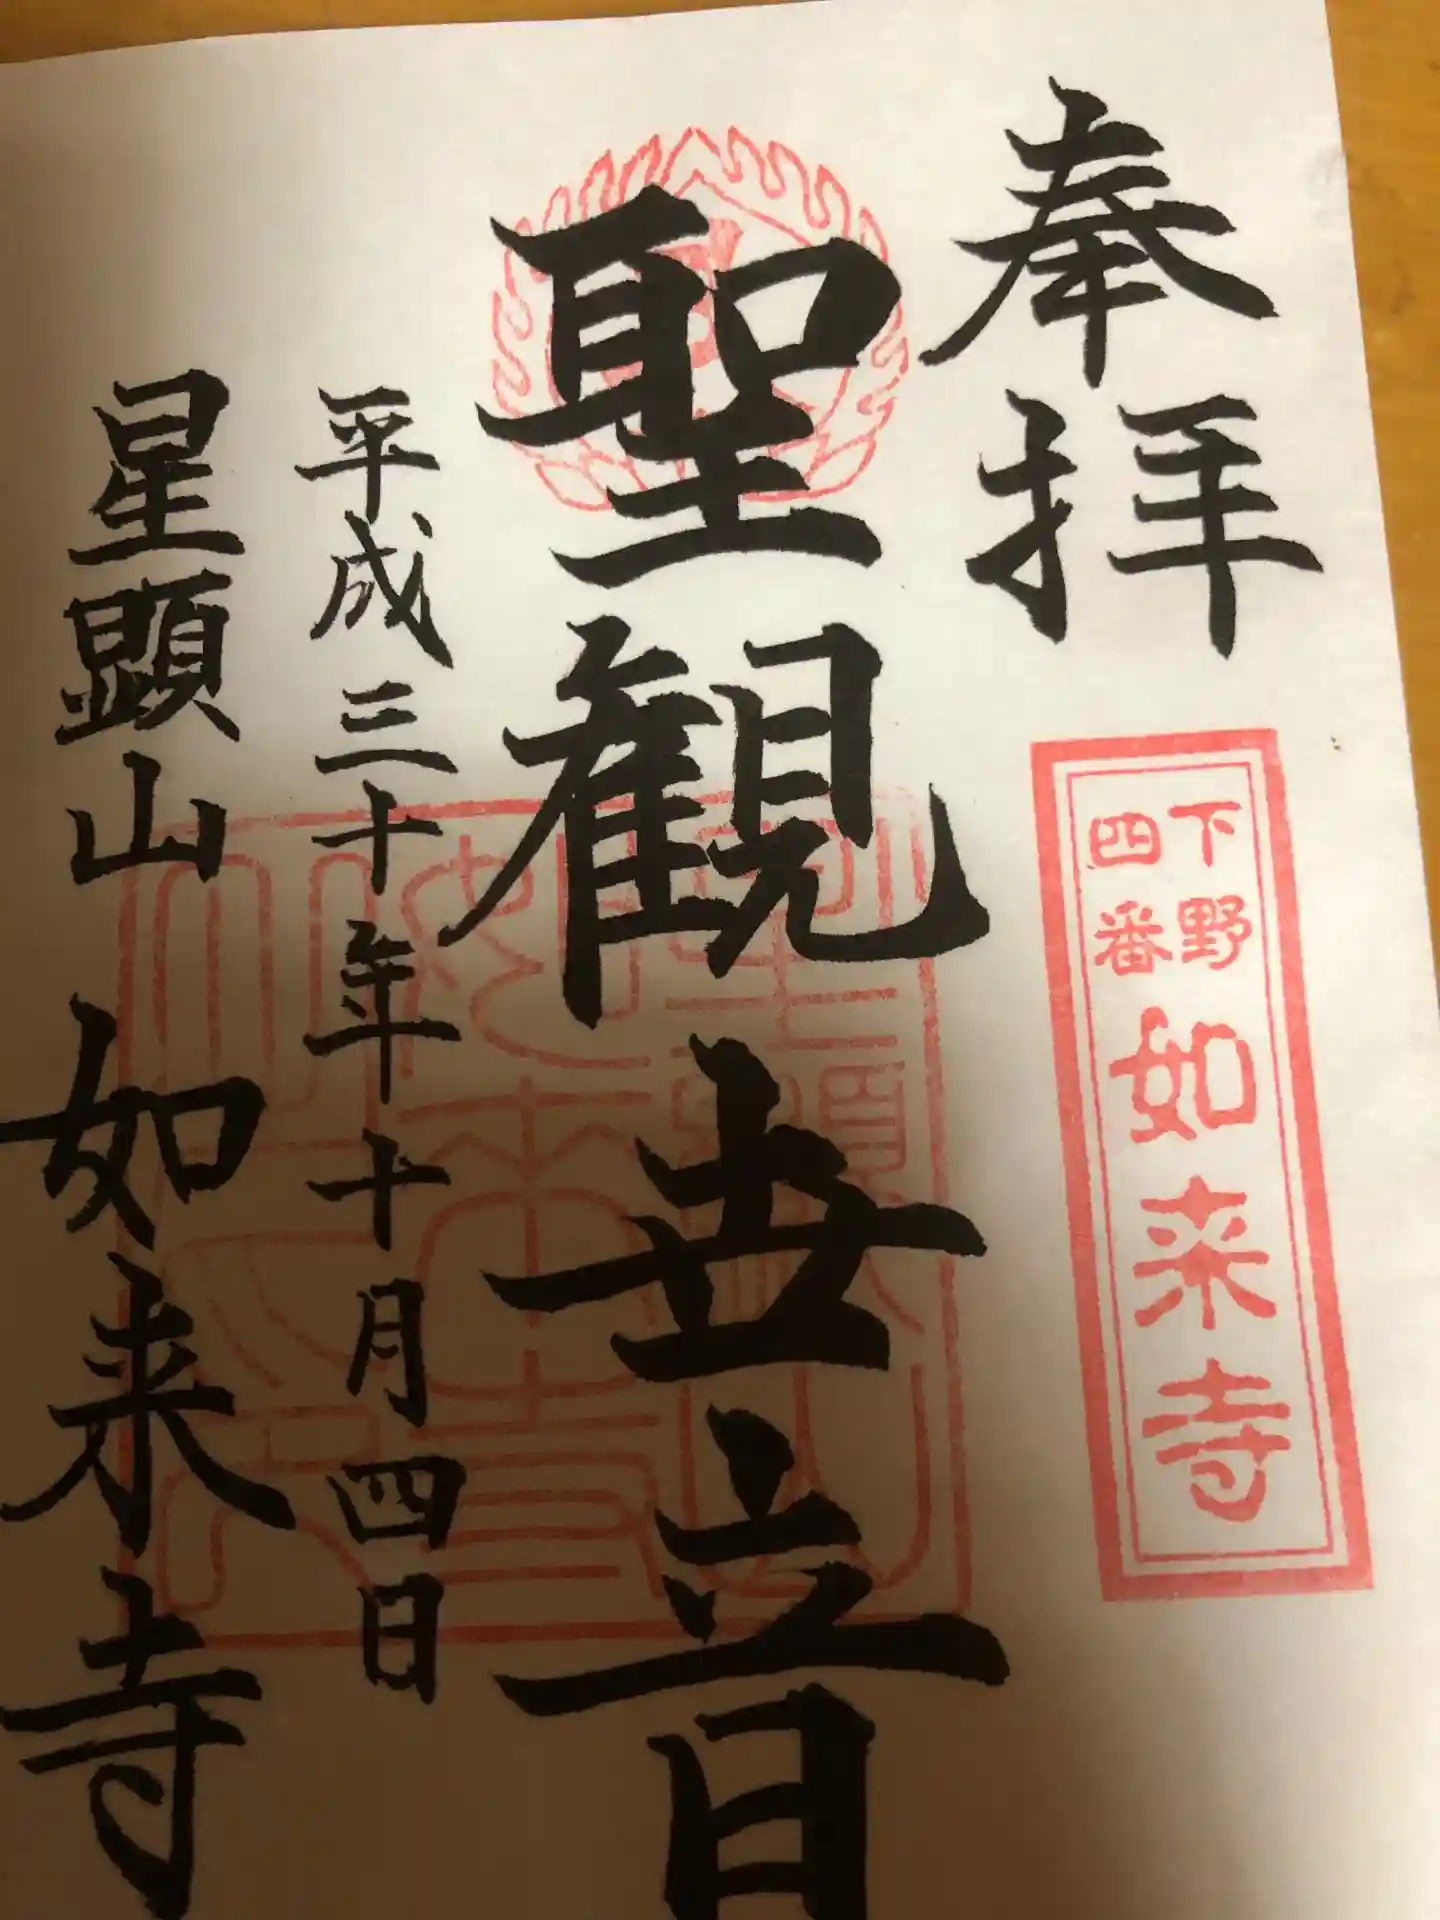 奉拝
下野
四番
如来寺
聖観世音
平成三十年十月四日
星顕山 如来寺